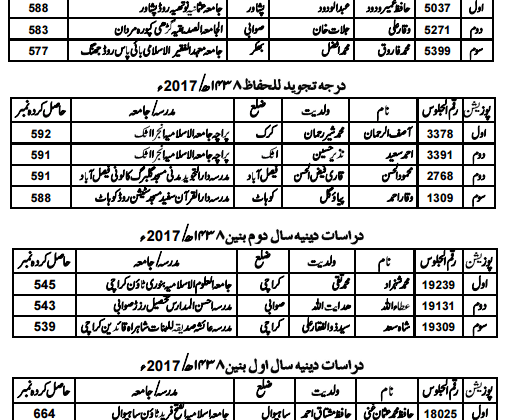 اول 5037 حافظ عمیر ودود عبدالودود پشاور جامعہ عثمانیہ نوتھیہ روڈ پشاور 588
دوم 5271 وقار علی جلات خان صوابی جامعۃ الصدیقیہ گڑھی کپورہ مردان 583
سوم 5399 محمد فاروق محمد افضل بھکر جامعہ معہد الفقیر الاسلامی بائی پاس روڈ جھنگ 577
درجہ تجوید للحفاظ ۱۴۳۸ھ/2017ء
پوزیشن رقم الجلوس نام ولدیت ضلع مدرسہ/جامعہ حاصل کردہ نمبر
اول 3378 آصف الرحمان محمد شیر رحمان کرک جامعہ الاسلامیہ اٹک 592
دوم 3391 احمد سعید نذیر حسین اٹک جامعہ الاسلامیہ اٹک 591
دوم 2768 محمود الحسن قاری فیض الحسن فیصل آباد مدرسہ دارالتجوید مدنی مسجد گلبرگ کالونی فیصل آباد 591
سوم 1309 وقار احمد پیاؤ گل کوہاٹ مدرسہ دارالقرآن سفید مسجد سٹیشن روڈ کوہاٹ 588
دراسات دینیہ سال دوم بنین ۱۴۳۸ھ/2017ء
پوزیشن رقم الجلوس نام ولدیت ضلع مدرسہ/جامعہ حاصل کردہ نمبر
اول 19239 محمد شہزاد محمد تقی کراچی جامعۃ العلوم الاسلامیہ بنوری ٹاؤن کراچی 545
دوم 19131 عطاءاللہ ھدایت اللہ صوابی مدرسہ احسن المدارس تحصیل رزڑ صوابی 543
سوم 19309 شاہ سعد سید ذوالفقار علی کراچی مدرسہ عائشہ صدیقہ للبنات شاہراہ قائدین کراچی 539
دراسات دینیہ سال اول بنین ۱۴۳۸ھ/2017ء
پوزیشن رقم الجلوس نام ولدیت ضلع مدرسہ/جامعہ حاصل کردہ نمبر
اول 18025 حافظ محمد عثمان غنی حافظ مشتاق احمد ساہیوال جامعہ اسلامیہ فرید ٹاؤن ساہیوال 664